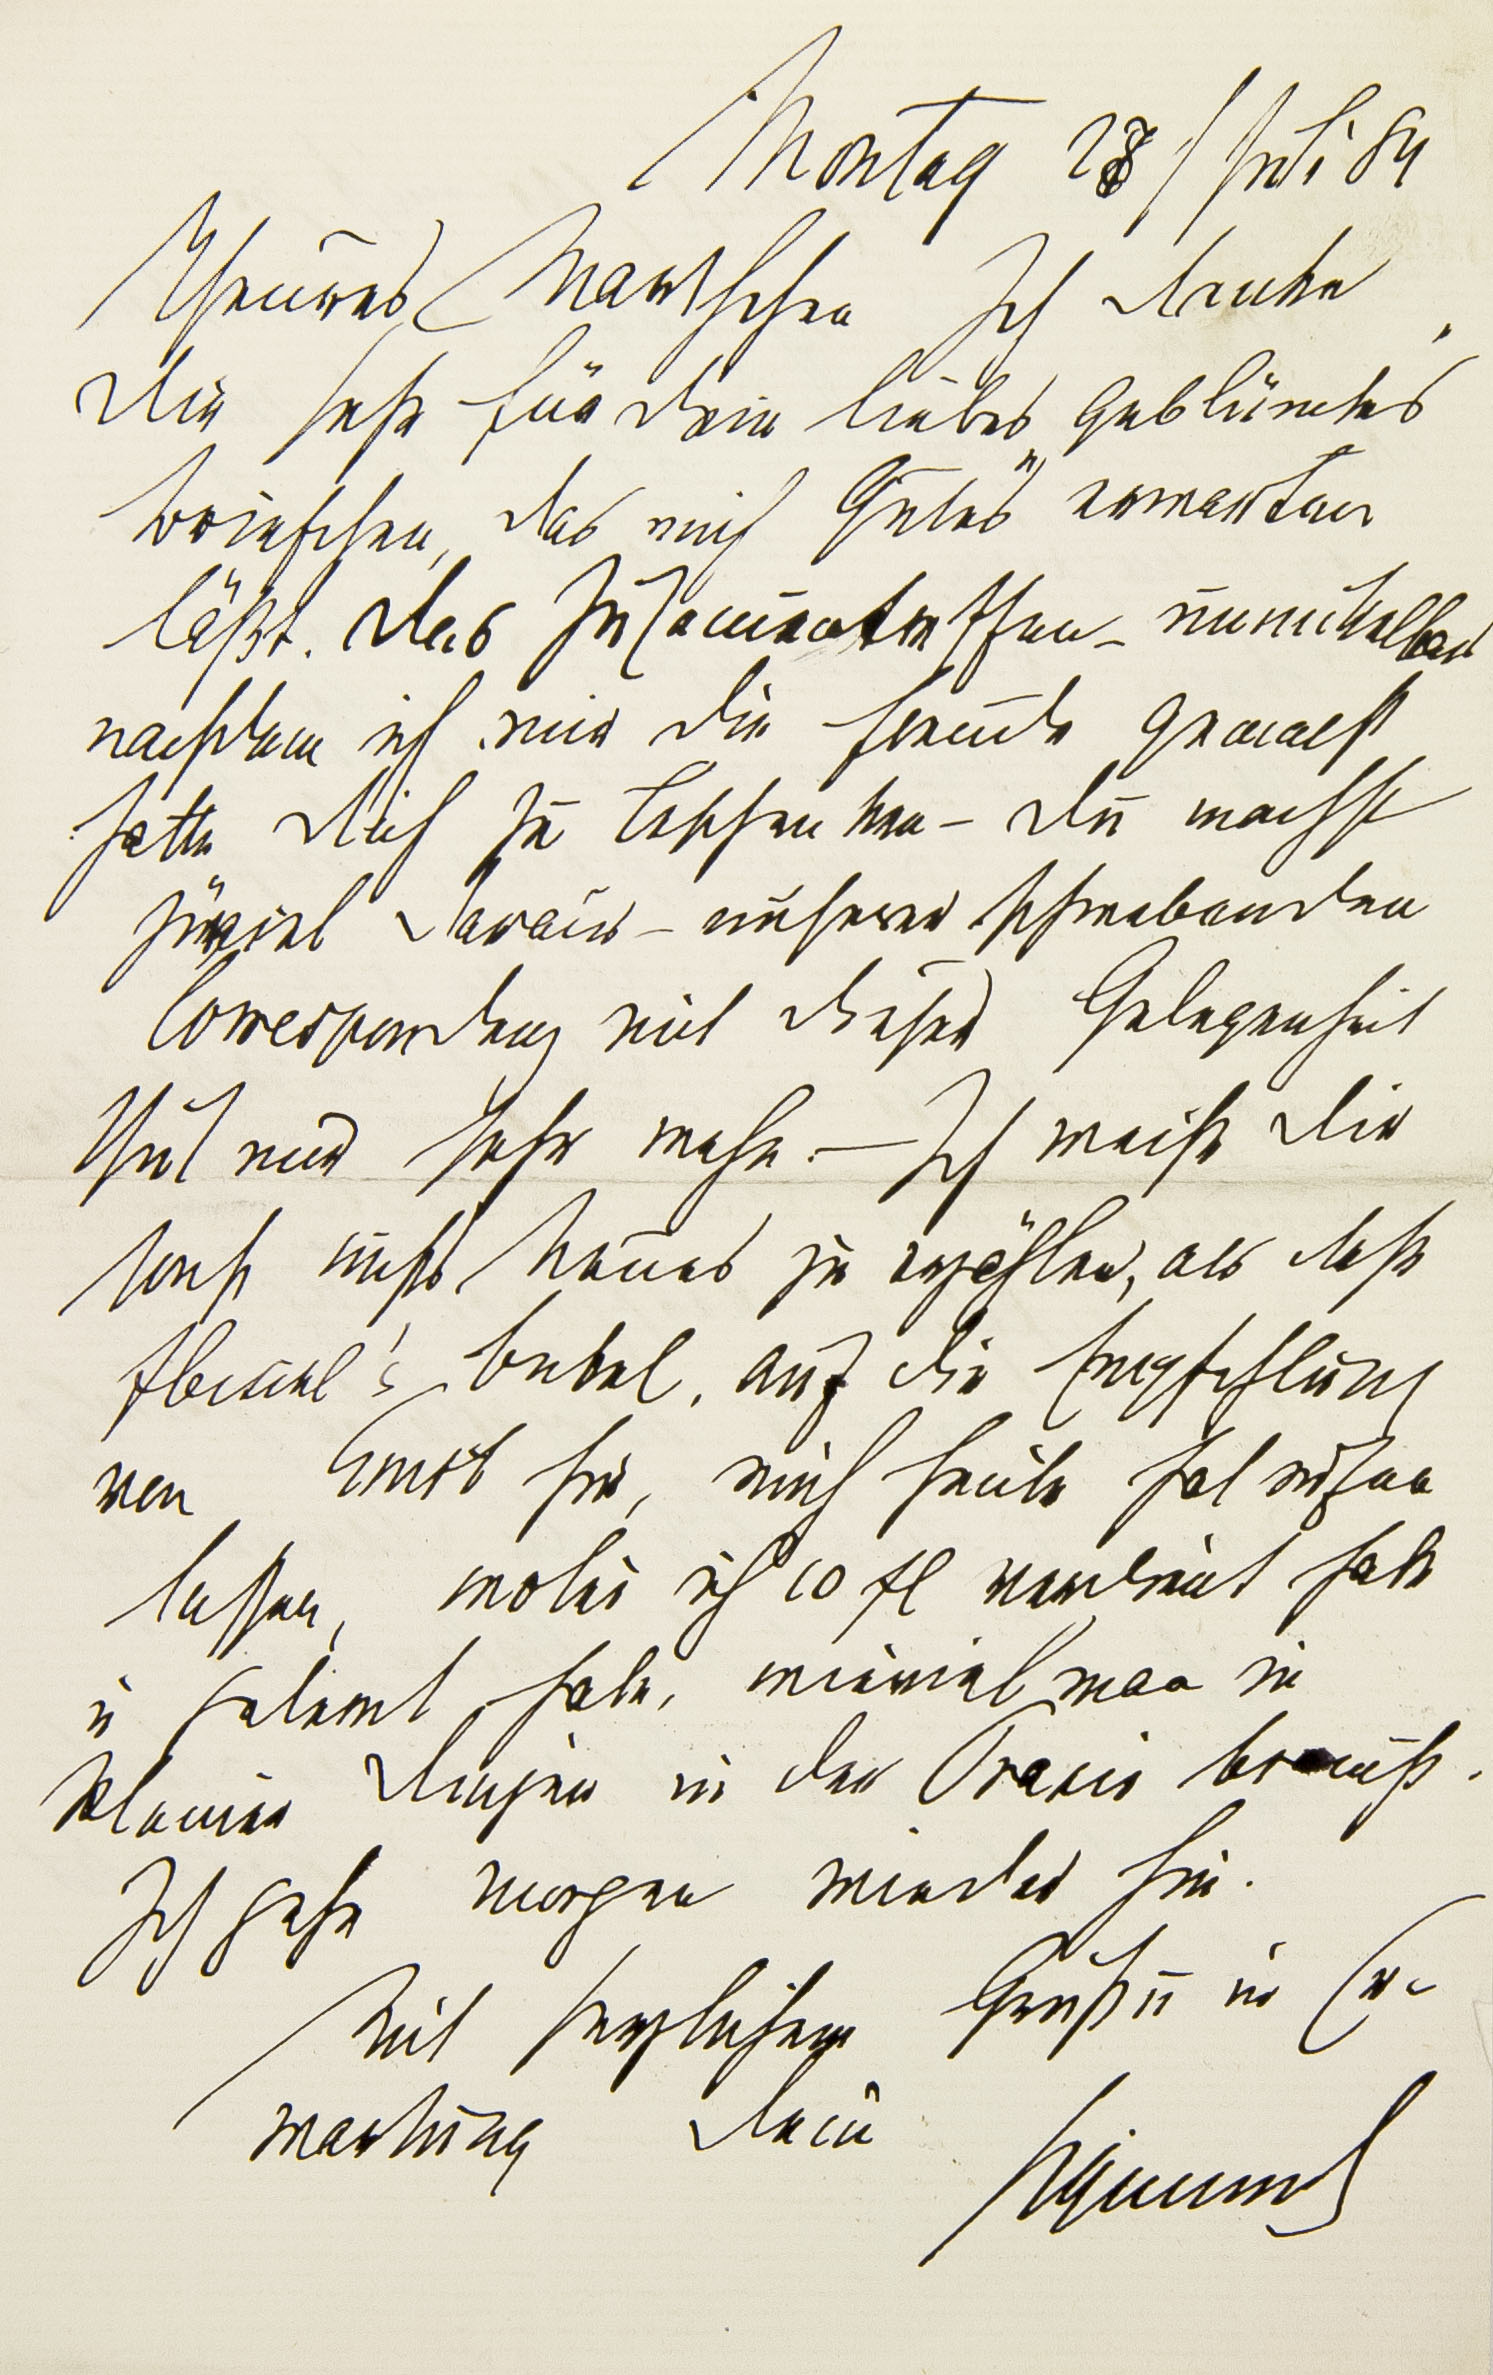 Montag 28/Juli 84
Theures Marthchen Ich danke
Dir sehr für Dein liebes geblümtes
Briefchen, das mich Gutes erwarten
läßt. Das Zusammentreffen – unmittelbar
nachdem ich mir die Freude gemacht
hatte Dich zu beschenken – Du machst
zuviel daraus – unserer schwebenden
Correspondenz mit dieser Gelegenheit
thut mir sehr wehe. – Ich weiß Dir
sonst nichts Neues zu erzählen, als daß
Fleischl's, auf die Empfehlung
von Ernst hin, mich heute hat rufen
lassen, wobei ich 10 fl verdient habe
u gelernt habe, wieviel man in
kleinen Dingen in der Praxis braucht.
Ich gehe morgen wieder hin.
Mit herzlichem Gruß u in Er-
wartung Dein
Sigmund